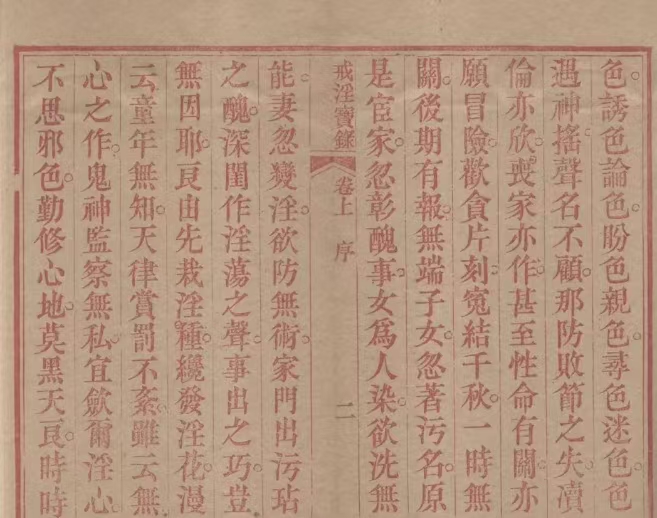 色。誘色論色。盼色親色。尋色迷色。色
遇神搖。聲名不顧。那防敗節之失。瀆
倫亦欣。喪家亦作。甚至性命有關。亦
願冒險。歡貪片刻。冤結千秋。一時無
關。後期有報。無端子女。忽著污名。原
是宦家。忽彰醜事。女爲人染。欲洗無
戒淫寶錄 卷上 序 二
能。妻忽變淫。欲防無術。家門出污玷
之醜。深閨作淫蕩之聲。事出之巧。豈
無因耶。良由先栽淫種。纔發淫花。漫
云童年無知。天律賞罰不紊。雖云無
心之作。鬼神監察無私。宜斂爾淫心。
不思邪色。勤修心地。莫黑天良。時時